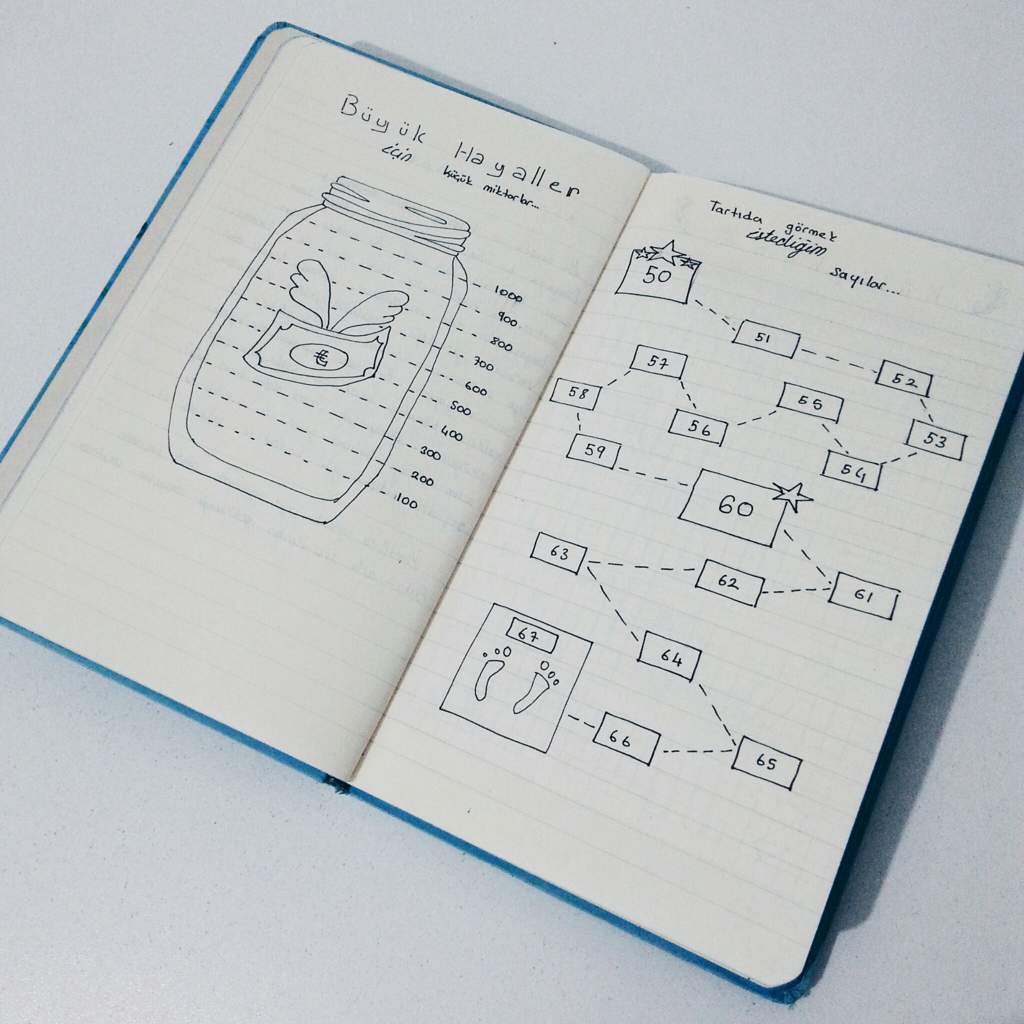 Büyük Hayaller
için
küçük miktarlar...
1000
900
800
700
600
500
400
300
200
100
€
Tartıda görmek
istediğim
sayılar...
50
51
52
53
54
55
56
57
58
59
60
61
62
63
64
65
66
67